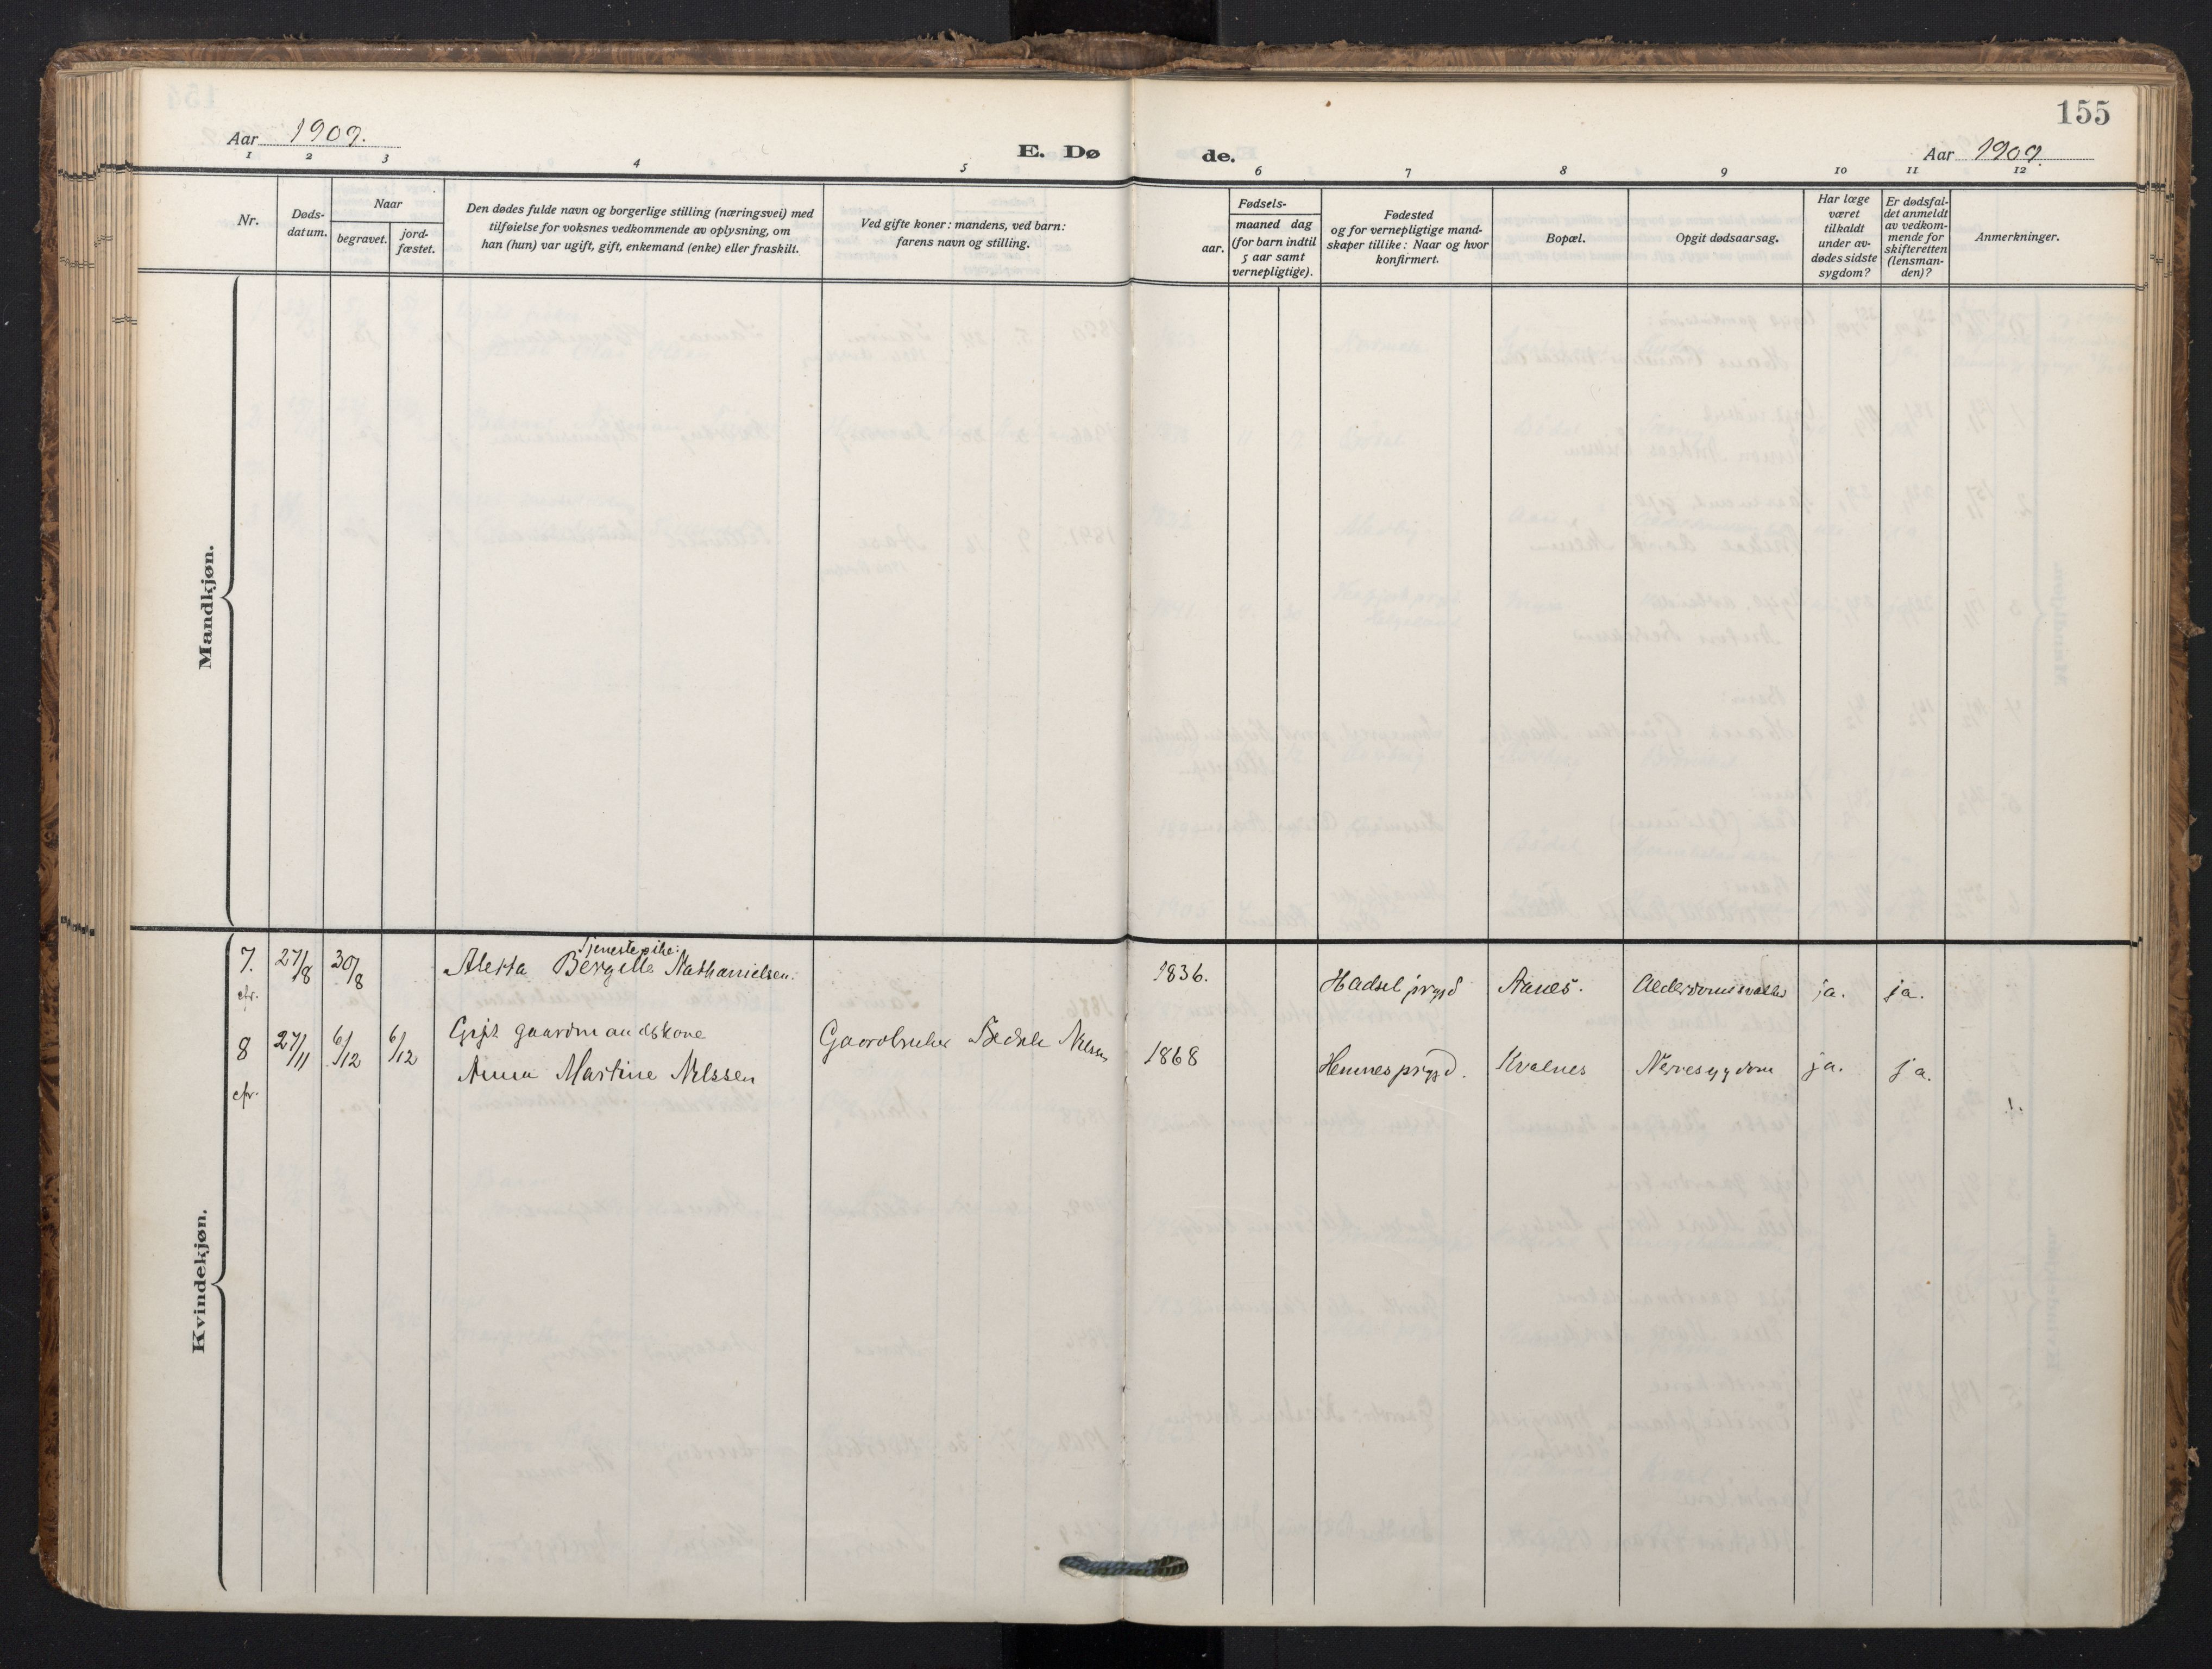 155
Aar 1909.
E. Dø
de.
Aar 1909.
1 2 3 4 5 6 7 8 9 10 11 12
Nr.
Døds-
datum.
Naar
begravet.
jord-
fæstet.
Den dødes fulde navn og borgerlige stilling (næringsvei) med
tilføielse for voksnes vedkommende av oplysning, om
han (hun) var ugift, gift, enkemand (enke) eller fraskilt.
Ved gifte koner: mandens, ved barn:
farens navn og stilling.
Fødsels-
aar.
maaned dag
(for barn indtil
5 aar samt
vernepligtige).
Fødested
og for vernepligtige mand-
skaper tillike: Naar og hvor
konfirmert.
Bopæl.
Opgit dødsaarsag.
Har læge
været
tilkaldt
under av-
dødes sidste
sygdom?
Er dødsfal-
det anmeldt
av vedkom-
mende for
skifteretten
(lensman-
den)?
Anmerkninger.
Mandkjøn.
Kvindekjøn.
Tjenestepike:
7. 27/8 30/8 Aletta Bergitte Nathanielsen. 1836. Hadsel prgjd Aanes. ja. ja.
cfr.
Gift gaardmandskone
8 27/11 6/12 6/12 Anna Martine Nilssen Gaardbruker Nilssen 1868 Hemnes prgjd. Kvalnes Nervesygdom ja. ja.
cfr.